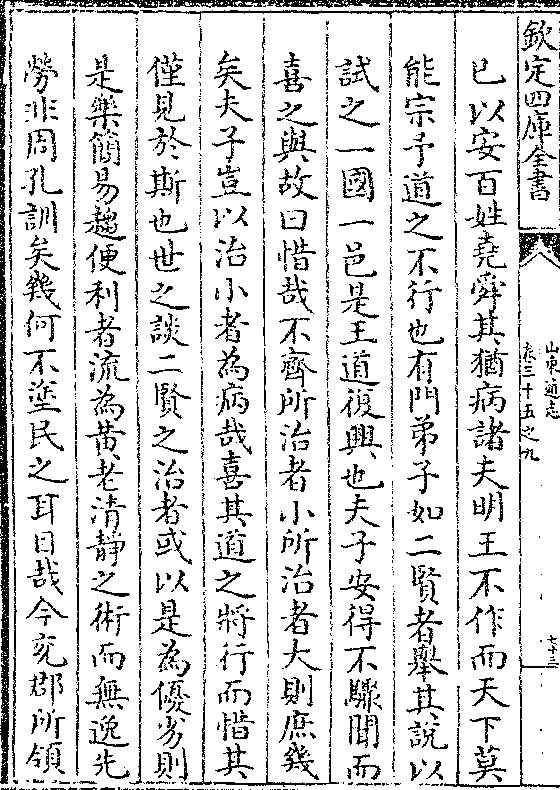 欽定四庫全書
山東通志
卷三十五之九
七十三
已以安百姓堯舜其猶病諸夫明王不作而天下莫
能宗予道之不行也有門弟子如二賢者舉其說以
試之一國一邑是王道復興也夫子安得不驟聞而
喜之與故曰惜哉不齊所治者小所治者大則庶幾
矣夫子豈以治小者為病哉喜其道之將行而惜其
僅見於斯也世之談二賢之治者或以是為優劣則
是樂簡易趨便利者流為黄老清静之術而無逸先
勞非周孔訓矣幾何不塗民之耳目哉今兖郡所領